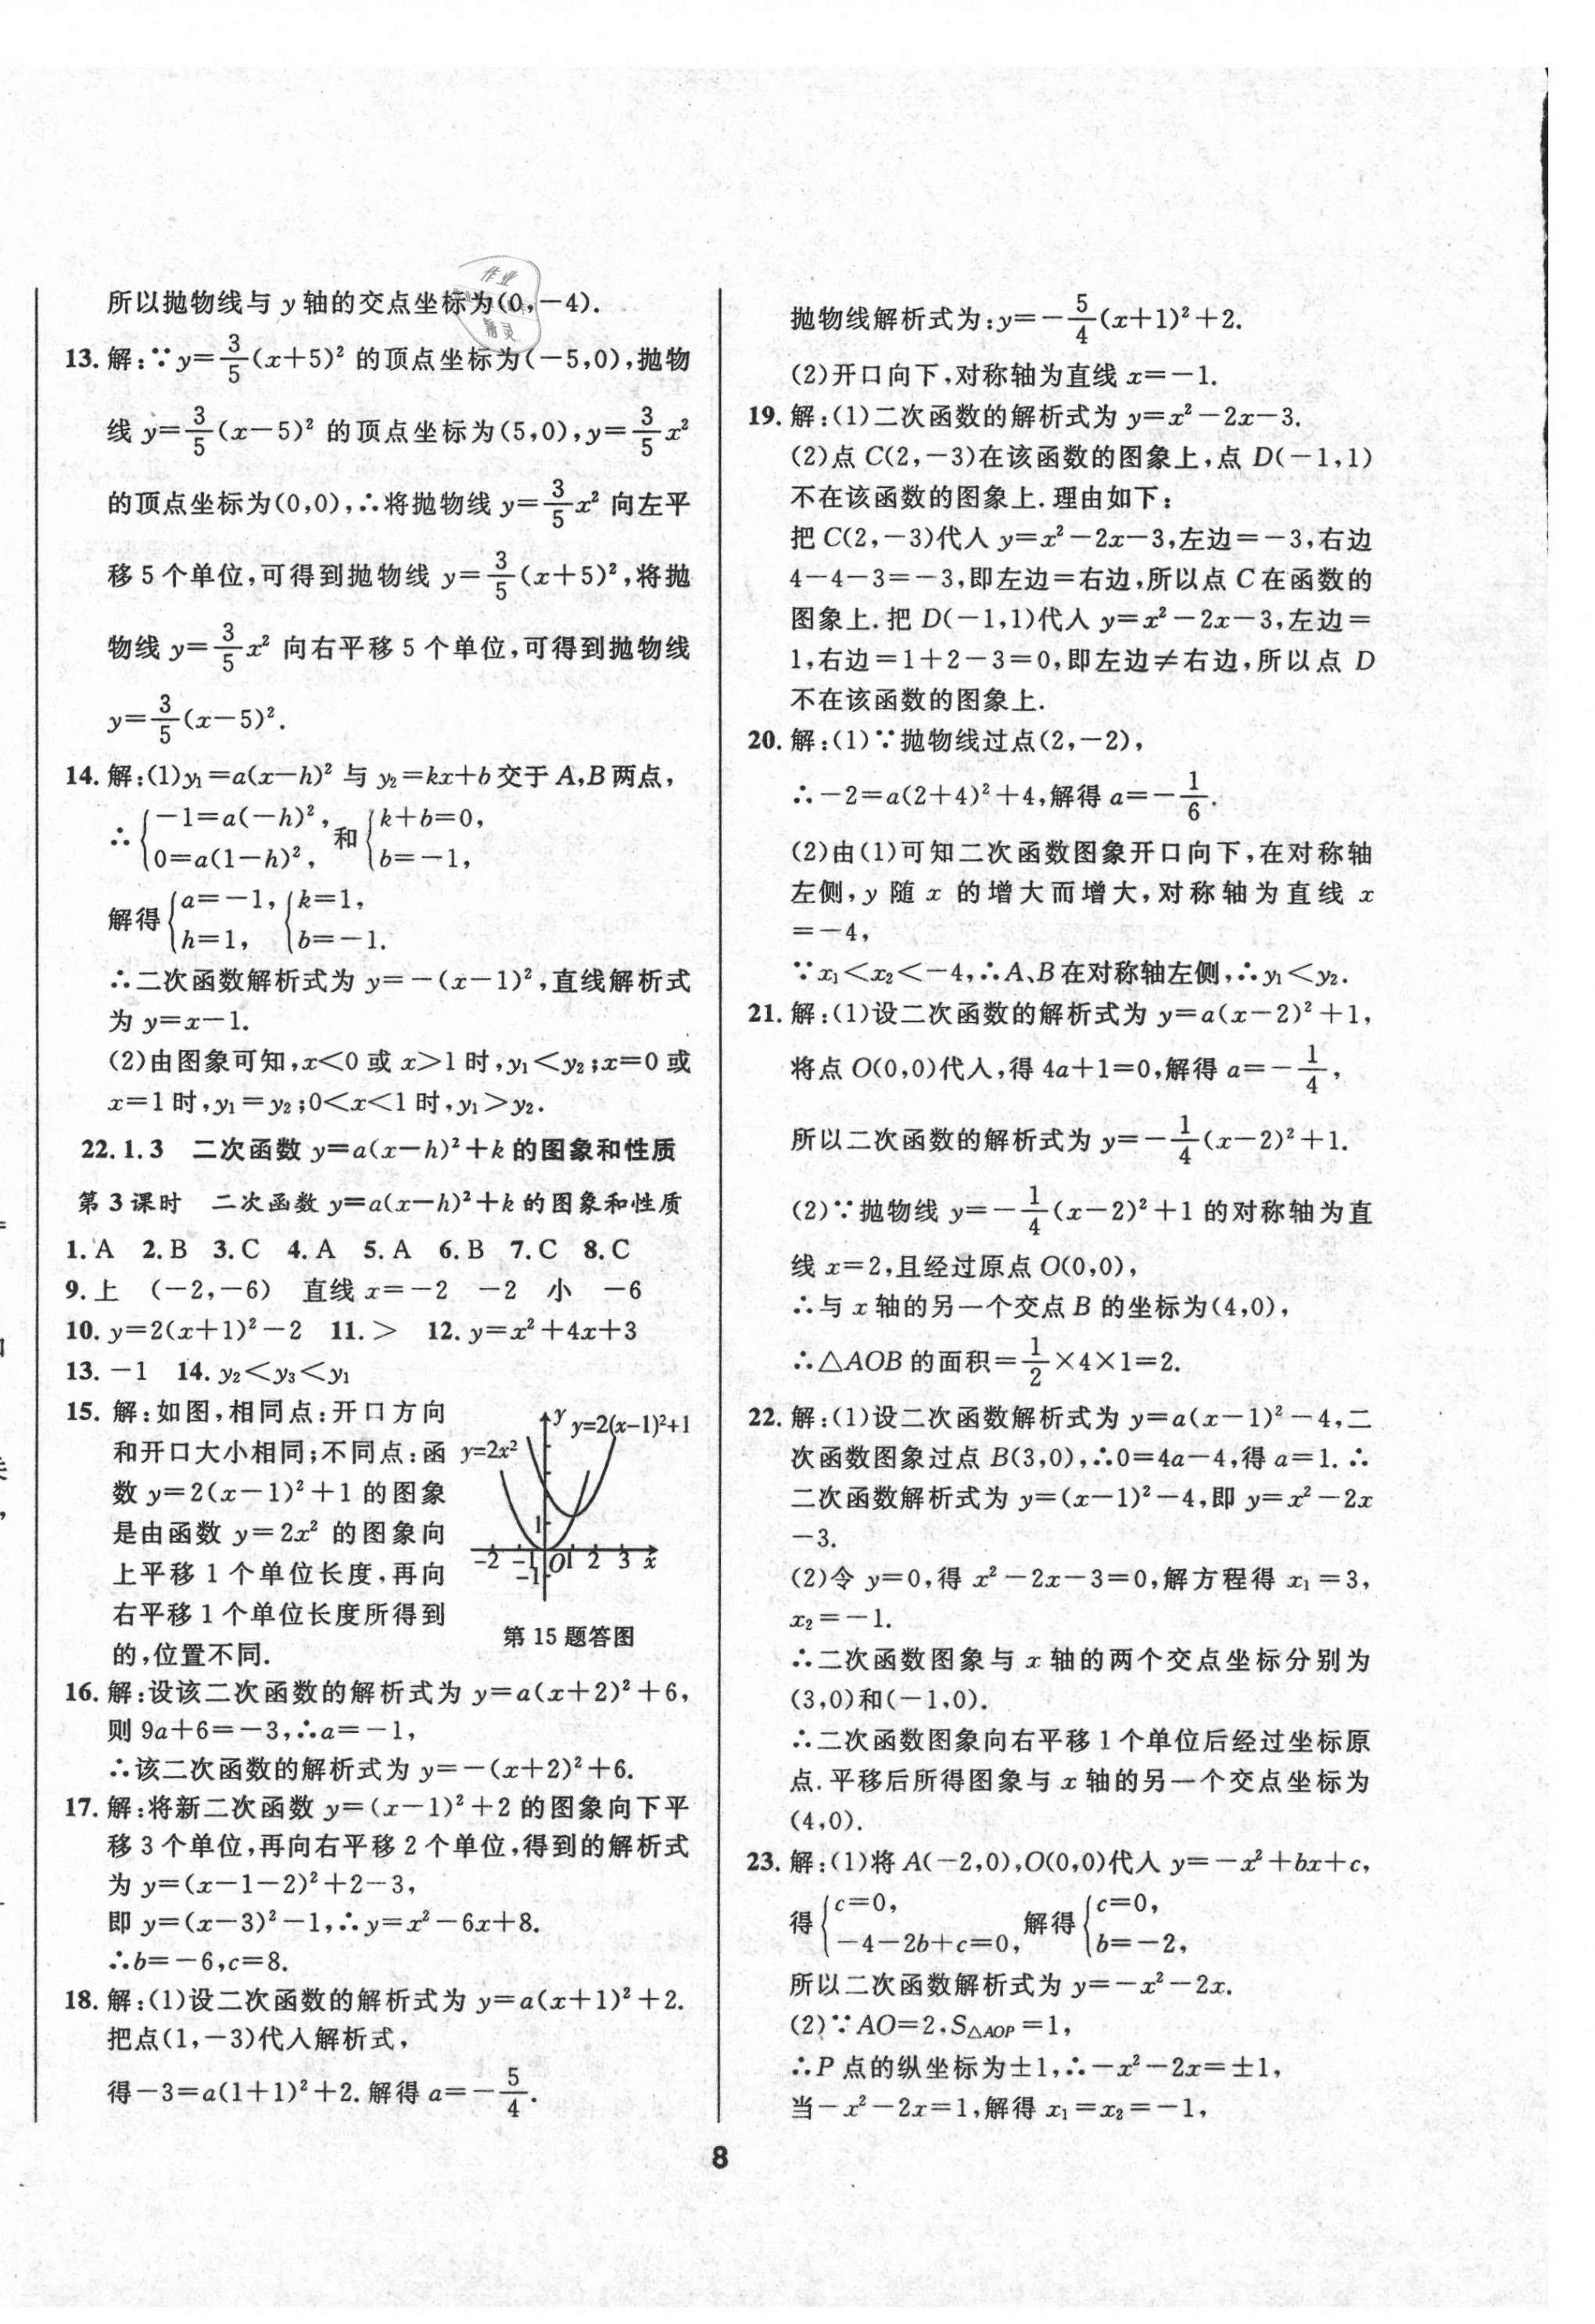 所以抛物线与 y 轴的交点坐标为(0,-4).
13. 解:∵y=3/5(x+5)² 的顶点坐标为(-5,0),抛物
线 y=3/5(x-5)² 的顶点坐标为(5,0),y=3/5x²
的顶点坐标为(0,0),∴将抛物线 y=3/5x² 向左平
移 5 个单位,可得到抛物线 y=3/5(x+5)²,将抛
物线 y=3/5x² 向右平移 5 个单位,可得到抛物线
y=3/5(x-5)².
14. 解:(1)y₁=a(x-h)² 与 y₂=kx+b 交于 A,B 两点,
∴{-1=a(-h)², 0=a(1-h)², 和{k+b=0, b=-1,
解得{a=-1, h=1, {k=1, b=-1.
∴二次函数解析式为 y=-(x-1)²,直线解析式
为 y=x-1.
(2)由图象可知,x<0 或 x>1 时,y₁<y₂;x=0 或
x=1 时,y₁=y₂;0<x<1 时,y₁>y₂.
22.1.3 二次函数 y=a(x-h)²+k 的图象和性质
第 3 课时 二次函数 y=a(x-h)²+k 的图象和性质
1. A 2. B 3. C 4. A 5. A 6. B 7. C 8. C
9. 上 (-2,-6) 直线 x=-2 -2 小 -6
10. y=2(x+1)²-2 11. > 12. y=x²+4x+3
13. -1 14. y₂<y₃<y₁
15. 解:如图,相同点:开口方向
和开口大小相同;不同点:函
数 y=2(x-1)²+1 的图象
是由函数 y=2x² 的图象向
上平移 1 个单位长度,再向
右平移 1 个单位长度所得到
的,位置不同.
y y=2(x-1)²+1
y=2x²
1
-2 -1 O 1 2 3 x
-1
第 15 题答图
16. 解:设该二次函数的解析式为 y=a(x+2)²+6,
则 9a+6=-3,∴a=-1,
∴该二次函数的解析式为 y=-(x+2)²+6.
17. 解:将新二次函数 y=(x-1)²+2 的图象向下平
移 3 个单位,再向右平移 2 个单位,得到的解析式
为 y=(x-1-2)²+2-3,
即 y=(x-3)²-1,∴y=x²-6x+8.
∴b=-6,c=8.
18. 解:(1)设二次函数的解析式为 y=a(x+1)²+2.
把点(1,-3)代入解析式,
得-3=a(1+1)²+2. 解得 a=-5/4.
抛物线解析式为:y=-5/4(x+1)²+2.
(2)开口向下,对称轴为直线 x=-1.
19. 解:(1)二次函数的解析式为 y=x²-2x-3.
(2)点 C(2,-3)在该函数的图象上,点 D(-1,1)
不在该函数的图象上.理由如下:
把 C(2,-3)代入 y=x²-2x-3,左边=-3,右边
4-4-3=-3,即左边=右边,所以点 C 在函数的
图象上.把 D(-1,1)代入 y=x²-2x-3,左边=
1,右边=1+2-3=0,即左边≠右边,所以点 D
不在该函数的图象上.
20. 解:(1)∵抛物线过点(2,-2),
∴-2=a(2+4)²+4,解得 a=-1/6.
(2)由(1)可知二次函数图象开口向下,在对称轴
左侧,y 随 x 的增大而增大,对称轴为直线 x
=-4,
∵x₁<x₂<-4,∴A、B 在对称轴左侧,∴y₁<y₂.
21. 解:(1)设二次函数的解析式为 y=a(x-2)²+1,
将点 O(0,0)代入,得 4a+1=0,解得 a=-1/4,
所以二次函数的解析式为 y=-1/4(x-2)²+1.
(2)∵抛物线 y=-1/4(x-2)²+1 的对称轴为直
线 x=2,且经过原点 O(0,0),
∴与 x 轴的另一个交点 B 的坐标为(4,0),
∴△AOB 的面积=1/2×4×1=2.
22. 解:(1)设二次函数解析式为 y=a(x-1)²-4,二
次函数图象过点 B(3,0),∴0=4a-4,得 a=1.∴
二次函数解析式为 y=(x-1)²-4,即 y=x²-2x
-3.
(2)令 y=0,得 x²-2x-3=0,解方程得 x₁=3,
x₂=-1.
∴二次函数图象与 x 轴的两个交点坐标分别为
(3,0)和(-1,0).
∴二次函数图象向右平移 1 个单位后经过坐标原
点.平移后所得图象与 x 轴的另一个交点坐标为
(4,0).
23. 解:(1)将 A(-2,0),O(0,0)代入 y=-x²+bx+c,
得{c=0, -4-2b+c=0, 解得{c=0, b=-2,
所以二次函数解析式为 y=-x²-2x.
(2)∵AO=2,S△AOP=1,
∴P 点的纵坐标为±1,∴-x²-2x=±1,
当-x²-2x=1,解得 x₁=x₂=-1,
8